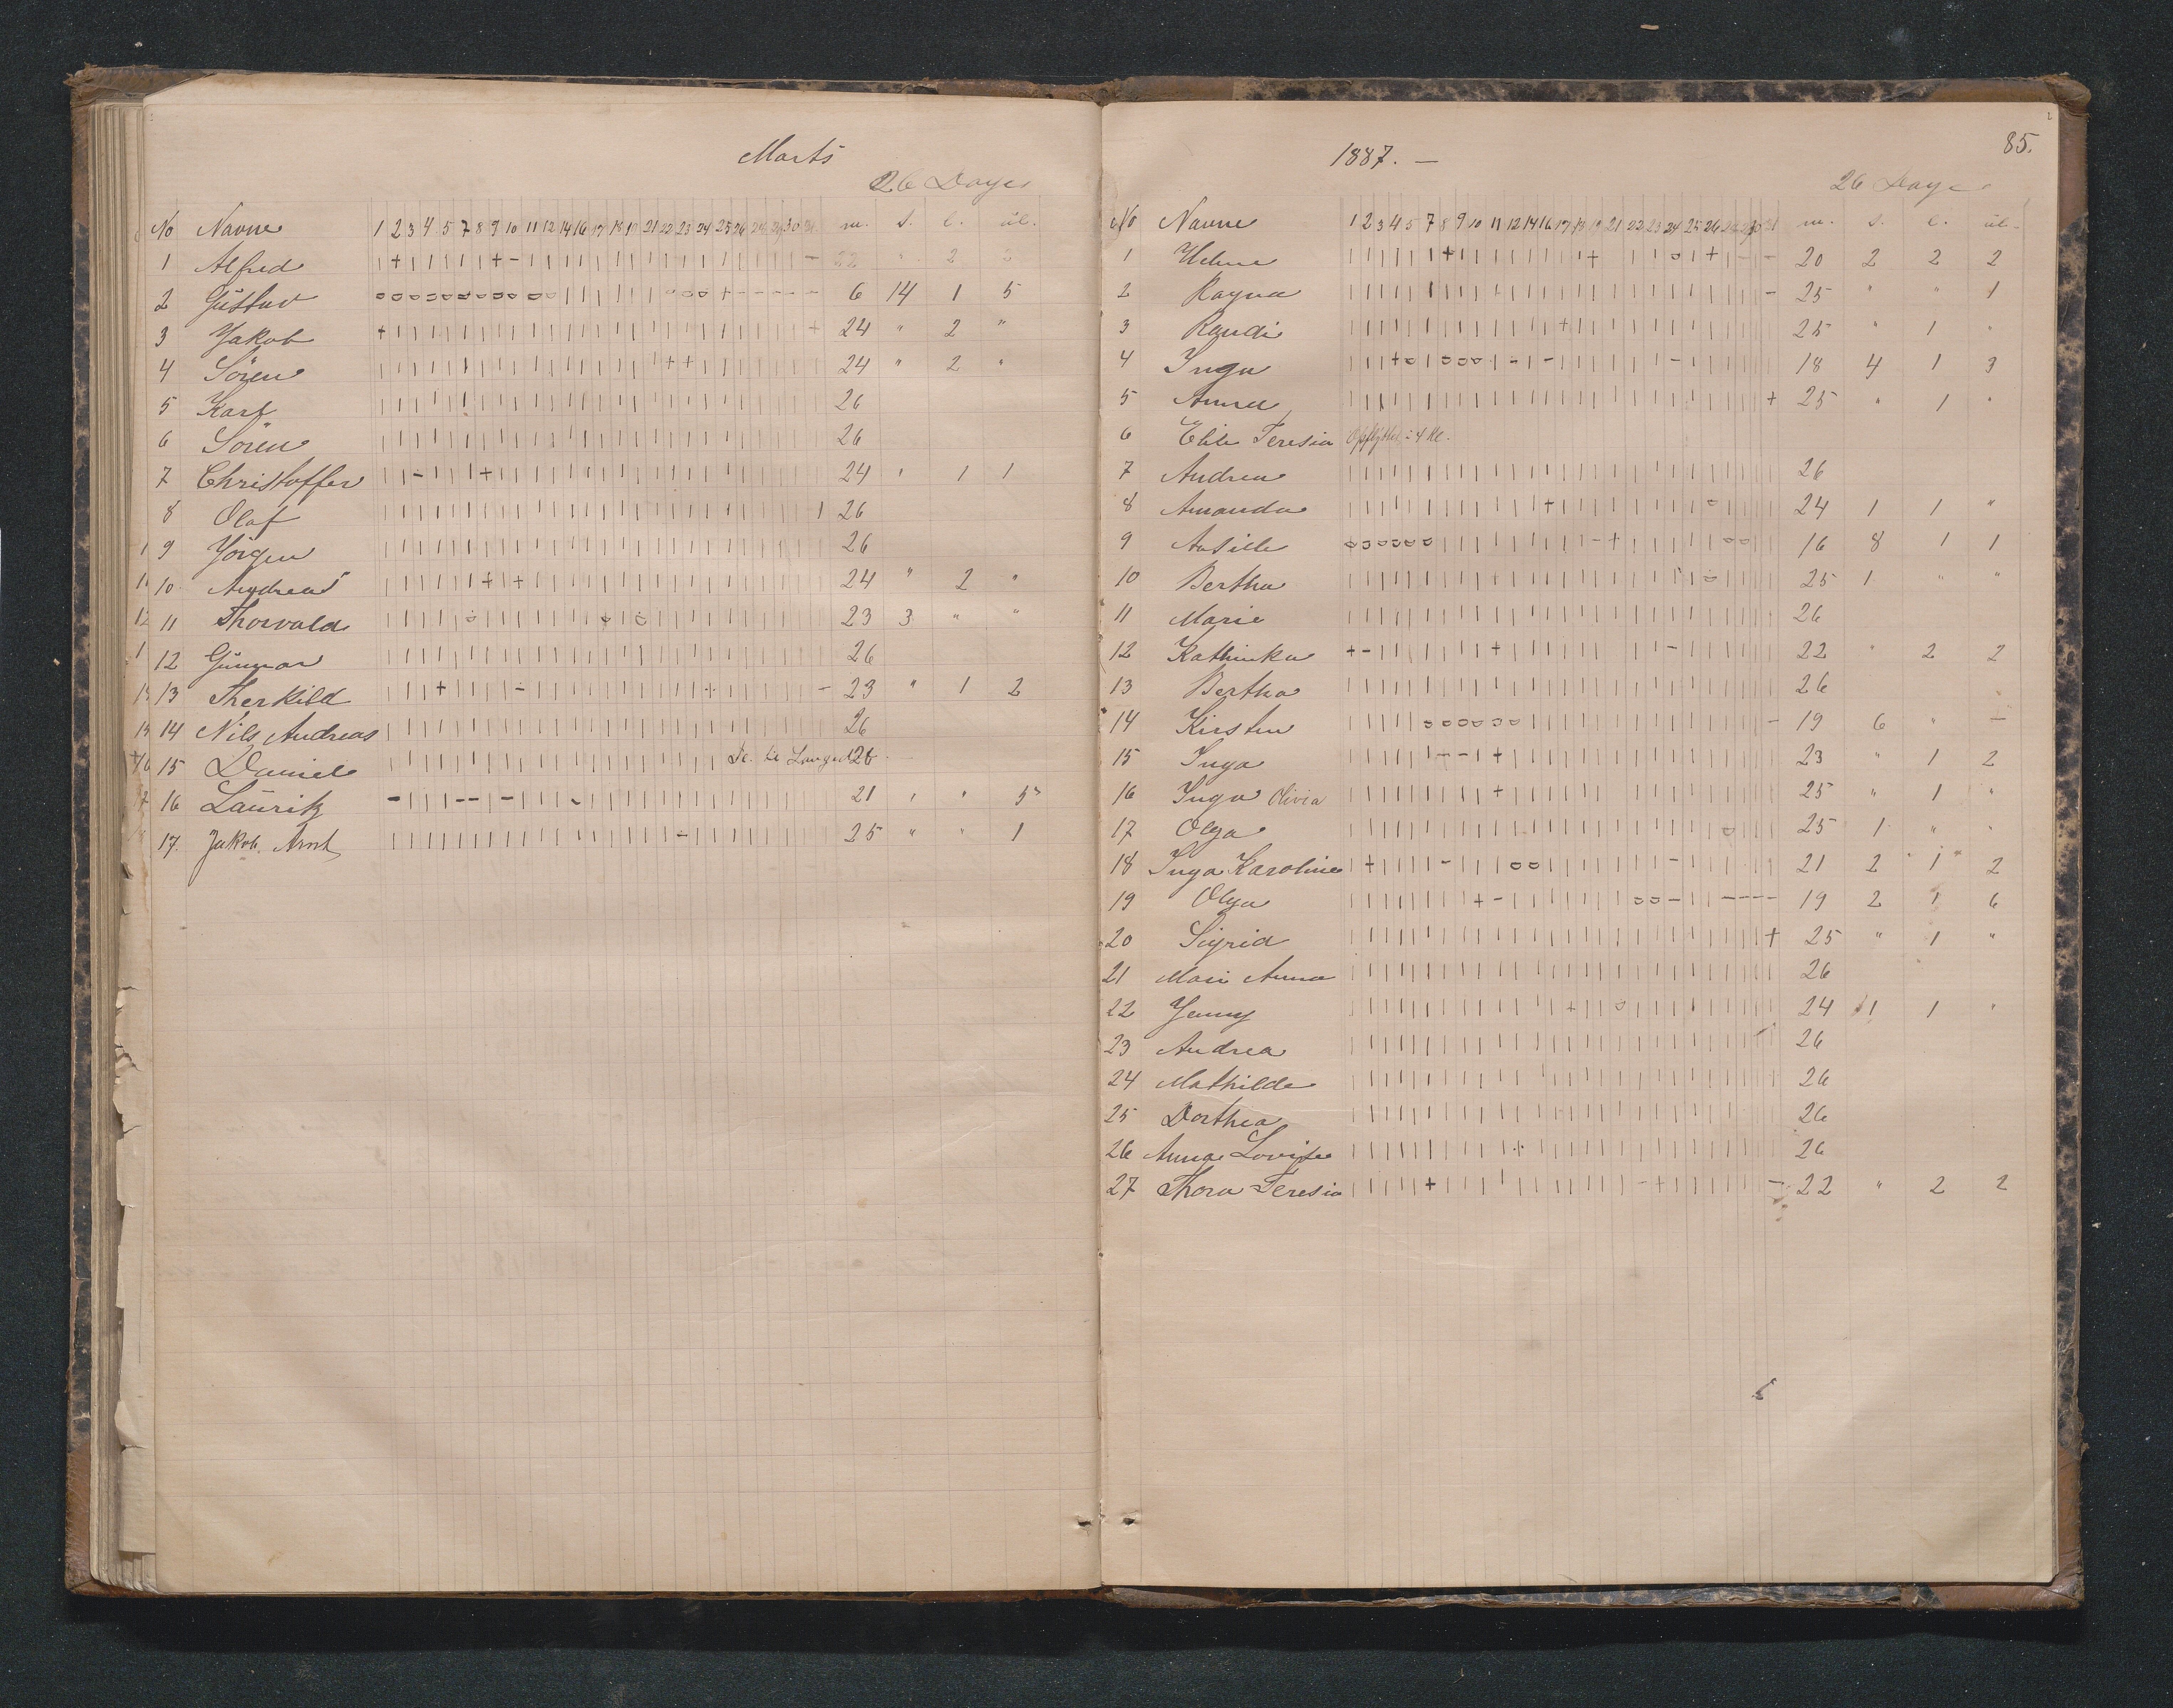 Marts
26 Dage
No Navne 1 2 3 4 5 7 8 9 10 11 12 14 16 17 18 19 21 22 23 24 25 26 28 29 30 31 m. s. l. ul.
1 Alfred 22 " 2 2
2 Gustav 6 14 1 5
3 Jakob 24 " 2 "
4 Sören 24 " 2 "
5 Karl 26
6 Sören 26
7 Christoffer 24 " 1 1
8 Olaf 26
9 Jörgen 26
10 Andreas 24 " 2 "
11 Thorvald 23 3 " "
12 Gunnar 26
13 Therkild 23 " 1 2
14 Nils Andreas 26
15 Daniel 26
16 Lauritz 21 " " 5
17. Jakob Arnt 25 " " 1
1887. —
85.
26 Dage
No Navne 1 2 3 4 5 7 8 9 10 11 12 14 16 17 18 19 21 22 23 24 25 26 28 29 30 31 m. s. l. ul.
1 Helene 20 2 2 2
2 Ragna 25 " " 1
3 Randi 25 " 1 "
4 Inga 18 4 1 3
5 Anna 25 " 1 "
6 Elile Teresia Opflyttet i 4 Kl.
7 Andrea 26
8 Amanda 24 1 1 "
9 16 8 1 1
10 Bertha 25 1 " "
11 Marie 26
12 Kathinka 22 " 2 2
13 Bertha 26
14 Kirsten 19 6 " —
15 Inga 23 " 1 2
16 Inga Olivia 25 " 1 "
17 Olga 25 1 " "
18 Inga Karoline 21 2 1 2
19 Olga 19 2 1 6
20 Sigrid 25 " 1 "
21 Mari Anna 26
22 Jenny 24 1 1 "
23 Andrea 26
24 Mathilde 26
25 Dorthea 26
26 Anna Lovise 26
27 Thora Teresia 22 " 2 2